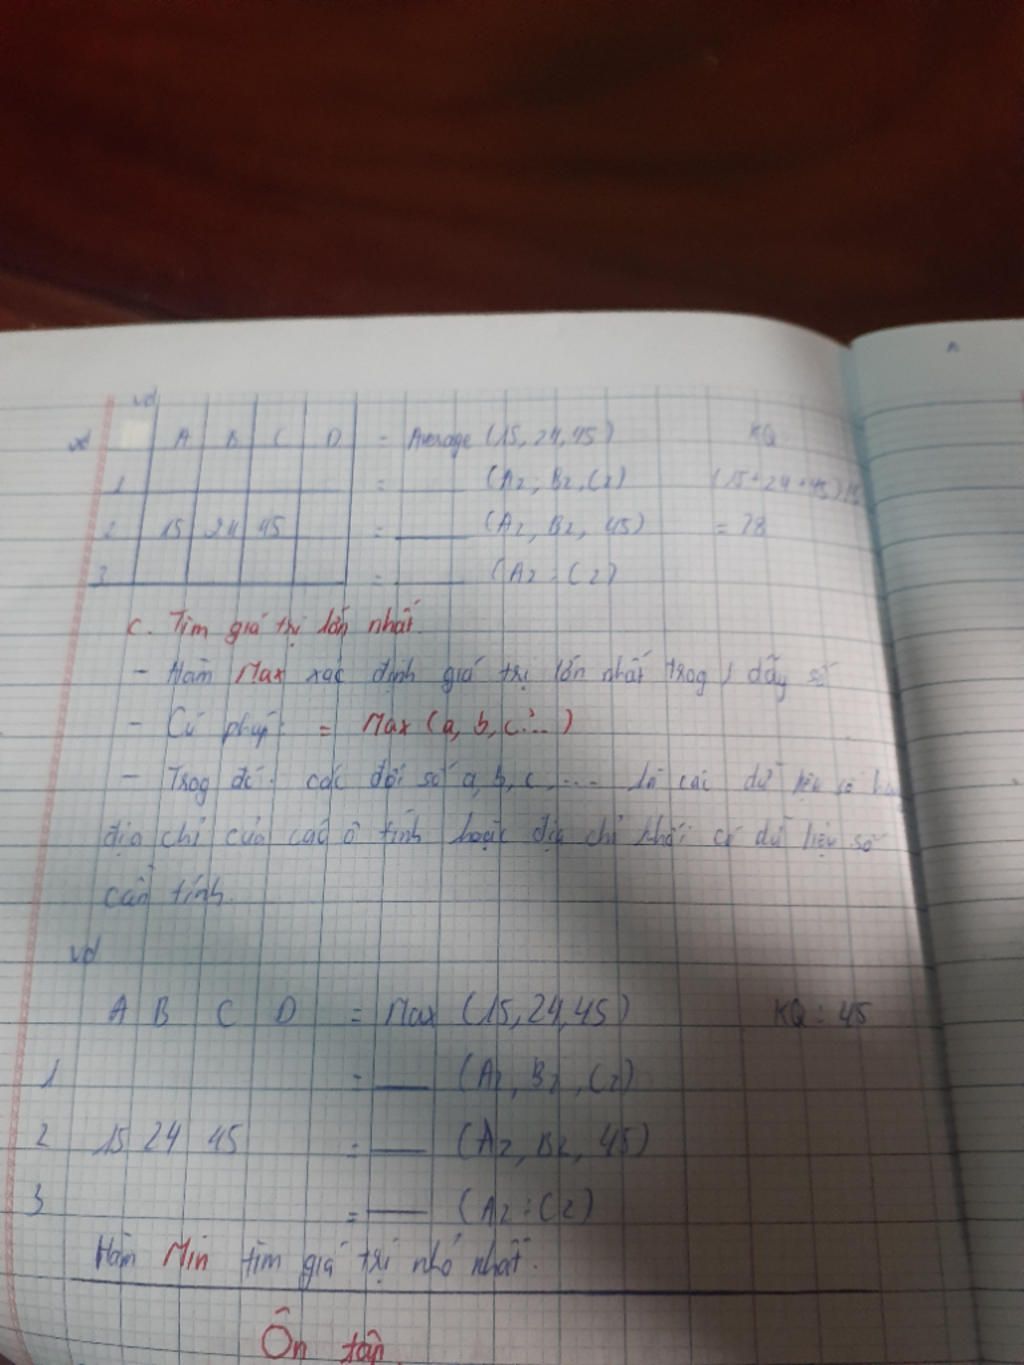 vd
vd A B C D = Average (15, 24, 45) KQ
1 = ___ (A2, B2, C2) (15+24+45)/3
2 15 24 45 = ___ (A2, B2, 45) = 28
3 = ___ (A2 : C2)
c. Tìm giá trị lớn nhất.
- Hàm Max xác định giá trị lớn nhất trog 1 dãy số
- Cú pháp: = Max (a, b, c...)
- Trog đó: các đối số a, b, c, .... là các dữ liệu số hay
địa chỉ của các ô tính hoặc địa chỉ khối có dữ liệu số
cần tính.
vd
A B C D = Max (15, 24, 45) KQ : 45
1 = ___ (A2, B2, C2)
2 15 24 45 = ___ (A2, B2, 45)
3 = ___ (A2 : C2)
Hàm Min tìm giá trị nhỏ nhất.
Ôn tập